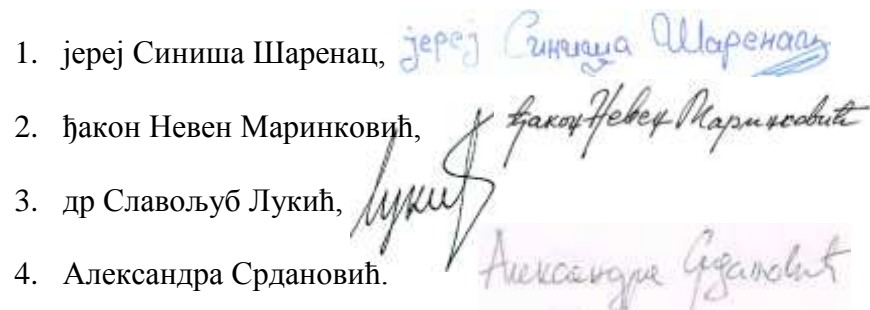 1. јереј Синиша Шаренац, јереј Синиша Шаренац
2. ђакон Невен Маринковић, ђакон Невен Маринковић
3. др Славољуб Лукић, Лукић
4. Александра Срдановић. Александра Срдановић